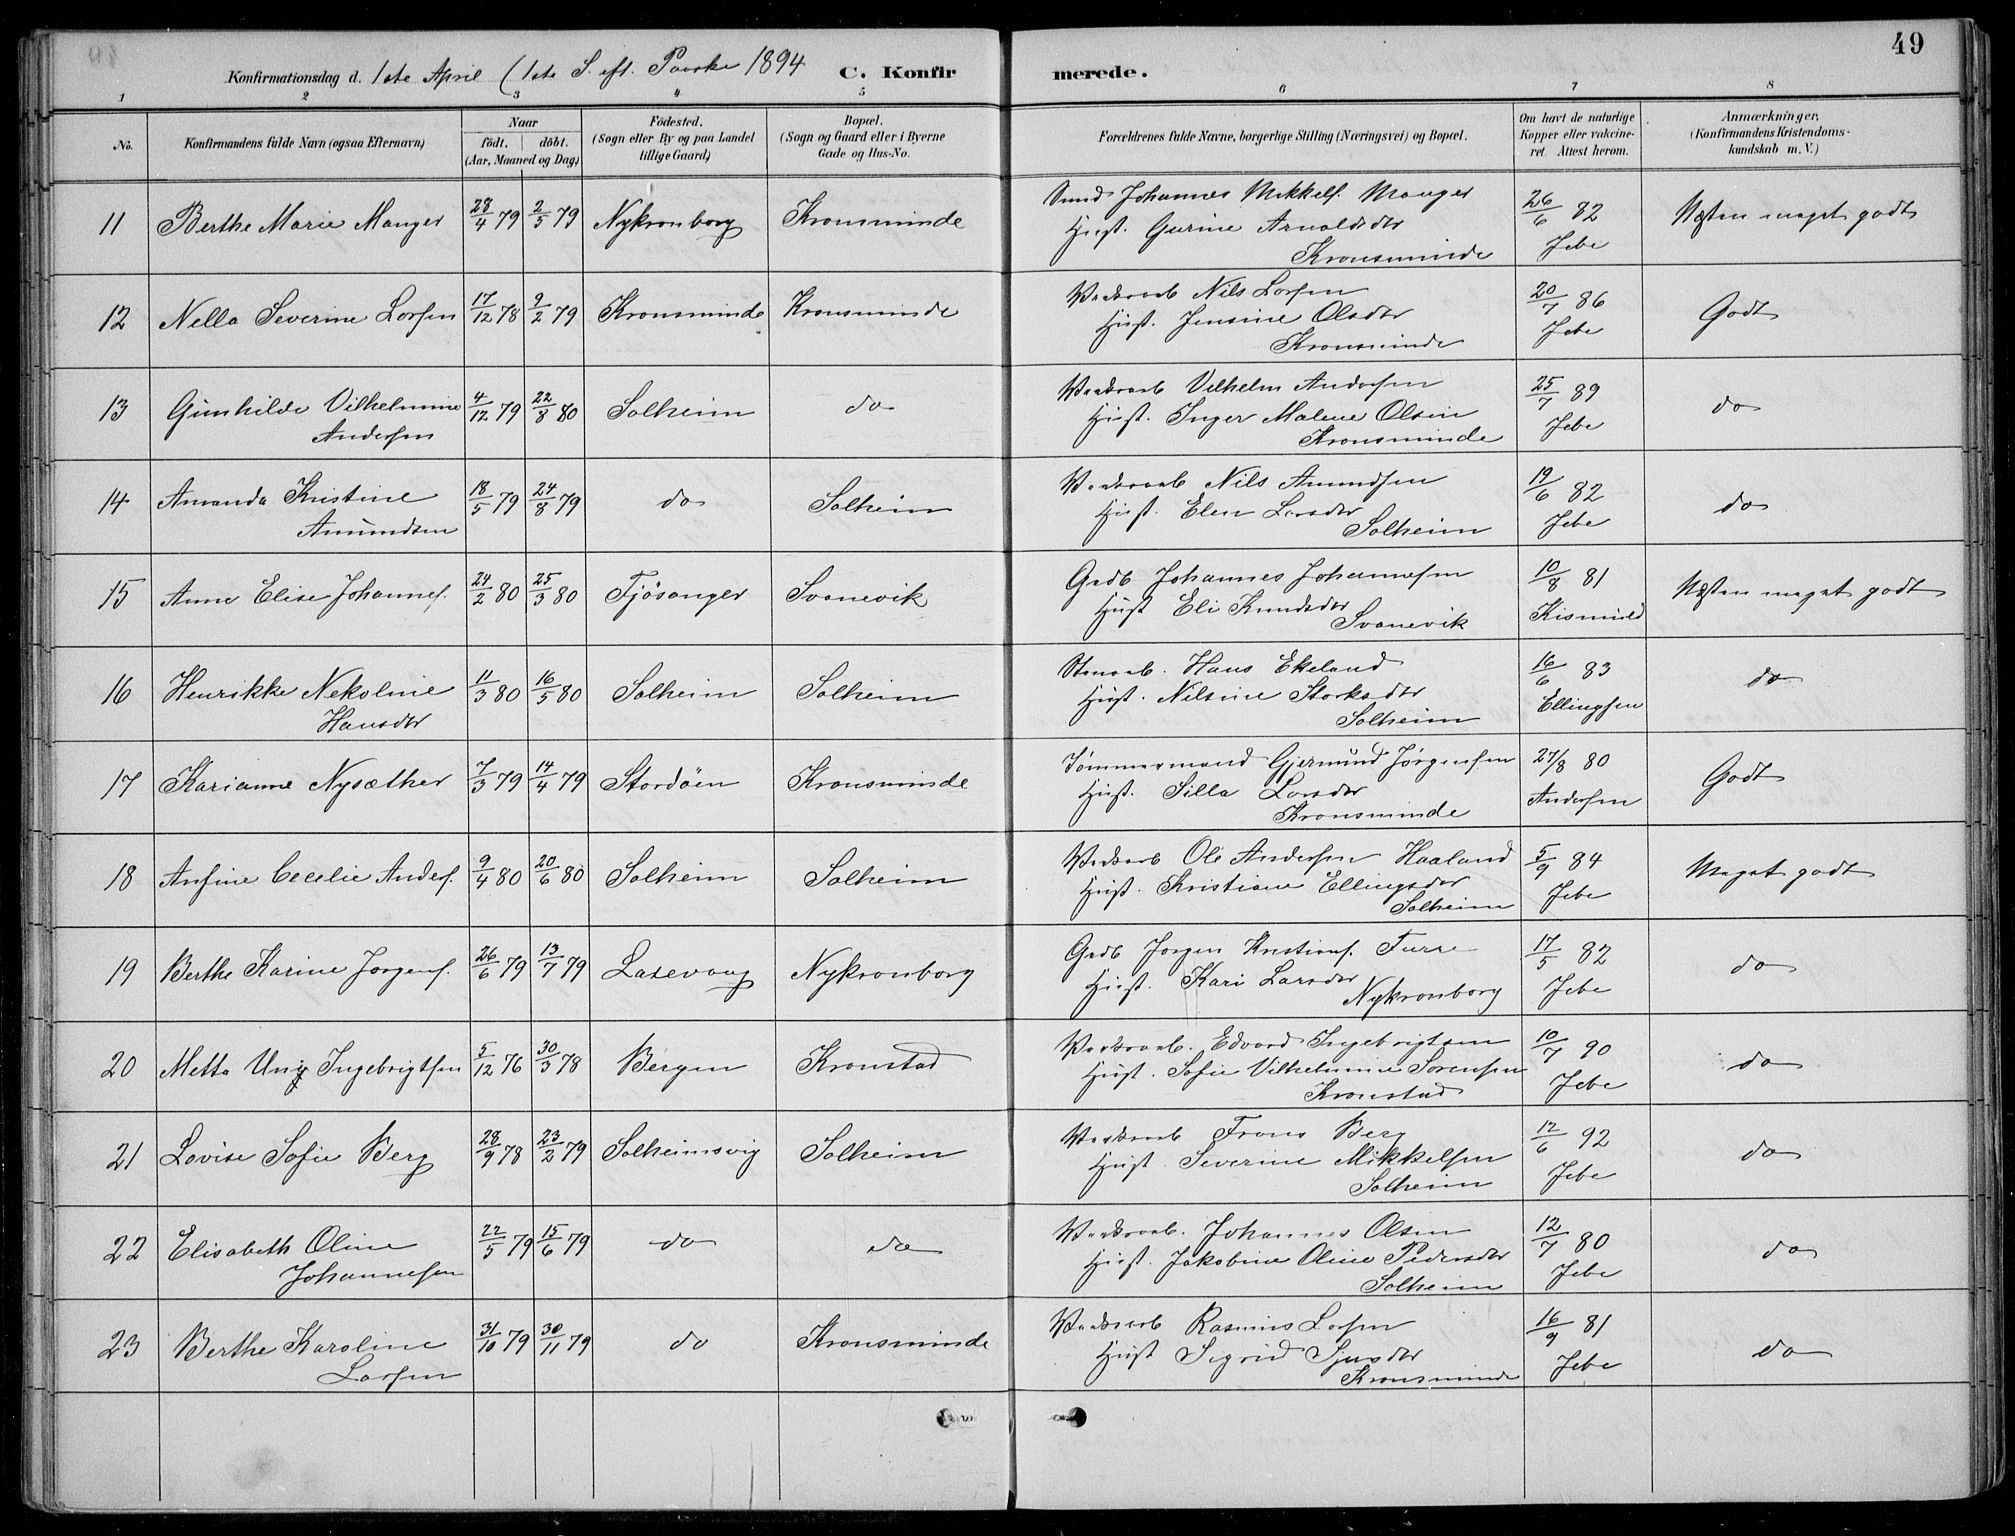 49
Konfirmationsdag d. 1ste April (1ste S. eft. Paaske 1894 C. Konfirmerede.
1 2 3 4 5 6 7 8
No. Konfirmandens fulde Navn (ogsaa Efternavn) Naar födt. döbt. (Aar, Maaned og Dag) Födested. (Sogn eller By og paa Landet tillige Gaard) Bopæl. (Sogn og Gaard eller i Byerne Gade og Hus-No. Forældrenes fulde Navne, borgerlige Stilling (Næringsvei) og Bopæl. Om havt de naturlige Kopper eller vakcineret. Attest herom. Anmærkninger, (Konfirmandens Kristendomskundskab m. V.)
11 Berthe Marie Manger 28/4 79 2/5 79 Nykronborg Kronsminde Smed Johannes Mikkels. Manger 26/6 82 Næsten meget godt
Hust. Gurine Arnoldsdtr Jebe
Kronsminde
12 Nella Severine Larsen 17/12 78 9/2 79 Kronsminde Kronsminde Værksarb Nils Larsen 20/7 86 Godt
Hust. Jensine Olsdtr Jebe
Kronsminde
13 Gunhilde Vilhelmine 4/12 79 22/8 80 Solheim do Værksarb Vilhelm Andersen 25/7 89 do
Andersen Hust. Inger Malene Olsen Jebe
Kronsminde
14 Amanda Kristine 18/5 79 24/8 79 do Solheim Værksarb Nils Amundsen 19/6 82 do
Amundsen Hust. Elen Larsdtr Jebe
Solheim
15 Anne Elise Johannes. 24/2 80 25/3 80 Fjösanger Svanevik Gadb Johannes Johannesen 10/8 81 Næsten meget godt
Hust Eli Knudsdtr
Svanevik
16 Henrikke Nekoline 11/3 80 16/5 80 Solheim Solheim Stenarb. Hans Ekeland 16/6 83 do
Hansdtr Hust. Nilsine Storksdtr Ellingsen
Solheim
17 Karianne Nysæther 7/3 79 14/4 79 Stordöen Kronsminde Tömmermand Gjermund Jørgensen 27/8 80 Godt
Hust. Silla Larsdtr Andersen
Kronsminde
18 Anfine Cecelie Anders. 9/4 80 20/6 80 Solheim Solheim Værksarb Ole Andersen Haaland 5/9 84 Meget godt
Hust. Kristiane Ellingsdtr Jebe
Solheim
19 Berthe Karine Jorgens. 26/6 79 13/7 79 Laxevaag Nykronborg Gadb Jorgen Kristians. Furre 17/5 82 do
Hust. Kari Larsdtr Jebe
Nykronborg
20 Metta Ingebrigtsen 5/12 76 30/3 78 Bergen Kronstad Værksarb. Edvard Ingebrigtsen 10/7 90 do
Hust. Sofie Vilhelmine Sorensen Jebe
Kronstad
21 Lovise Sofie Berg 28/9 78 23/2 79 Solheimsvig Solheim Værksarb Frans Berg 12/6 92 do
Hust. Severine Mikkelsen Jebe
Solheim
22 Elisabeth Oline 22/5 79 15/6 79 do do Værksarb. Johannes Olsen 12/7 80 do
Johannesen Hust. Jakobine Oline Pedersdtr Jebe
Solheim
23 Berthe Karoline 31/10 79 30/11 79 do Kronsminde Værksarb Rasmus Larsen 16/9 81 do
Larsen Hust Sigrid Sjursdtr Jebe
Kronsminde